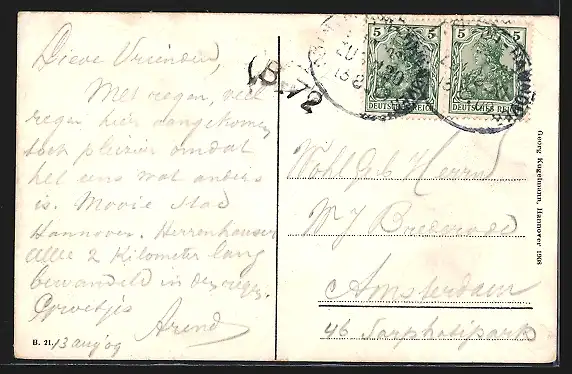 Lieve Vrienden,
Met regen, veel
regen hier aangekomen
toch pleizier omdat
het eens wat anders
is. Mooie stad
Hannover. Herrenhauser
Allee 2 Kilometer lang
bewandeld in de regen.
Groetjes
Arend
13 aug 09
B. 21.
(B. 72
5 5
DEUTSCHES REICH
5 5
DEUTSCHES REICH
Wohl Geb Herrn
W J Brederode
Amsterdam
46 Sarphatipark
Georg Kugelmann, Hannover 1908